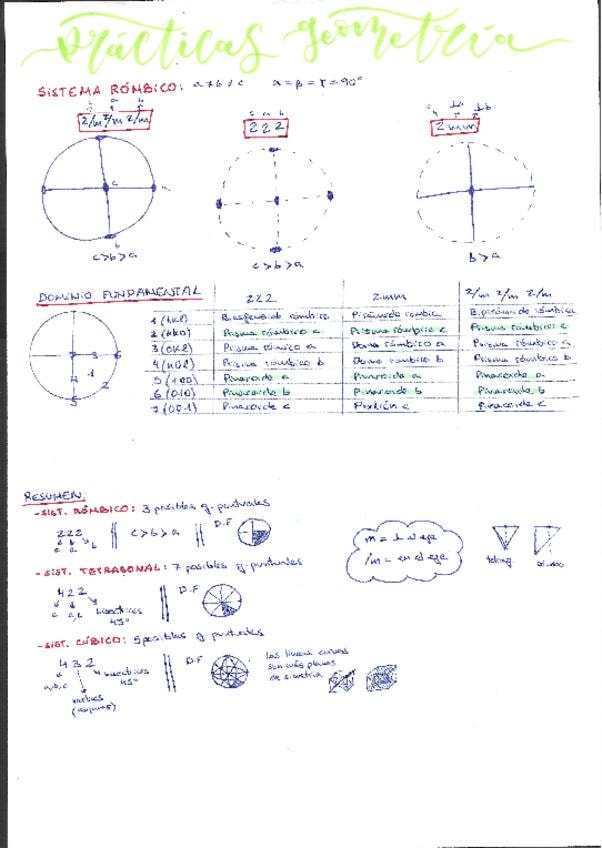 prácticas geometría
SISTEMA RÓMBICO: a≠b≠c α=β=γ=90°
2/m 2/m 2/m
222
2mm
c
b
c>b>a
c>b>a
b>a
DOMINIO FUNDAMENTAL 222 2mm 2/m 2/m 2/m
1 (hkl) Biesfenoide rómbico Pirámide rómbica Bipirámide rómbica
2 (hk0) Prisma rómbico c Prisma rómbico c Prisma rómbico c
3 (0kl) Prisma rómbico a Domo rómbico a Prisma rómbico a
4 (h0l) Prisma rómbico b Domo rómbico b Prisma rómbico b
5 (100) Pinacoide a Pinacoide a Pinacoide a
6 (010) Pinacoide b Pinacoide b Pinacoide b
7 (001) Pinacoide c Pedión c Pinacoide c
7 3 6
4 1
2
5
RESUMEN:
-SIST. RÓMBICO: 3 posibles g. puntuales
222 c>b>a D.F
c a b
-SIST. TETRAGONAL: 7 posibles g. puntuales
422 D.F
c a,b bisectrices 45°
-SIST. CÚBICO: 5 posibles g. puntuales
432 D.F
a,b,c bisectrices 45°
(esquinas)
m = ⊥ al eje
/m = en el eje
las líneas curvas
son más planos
de simetría